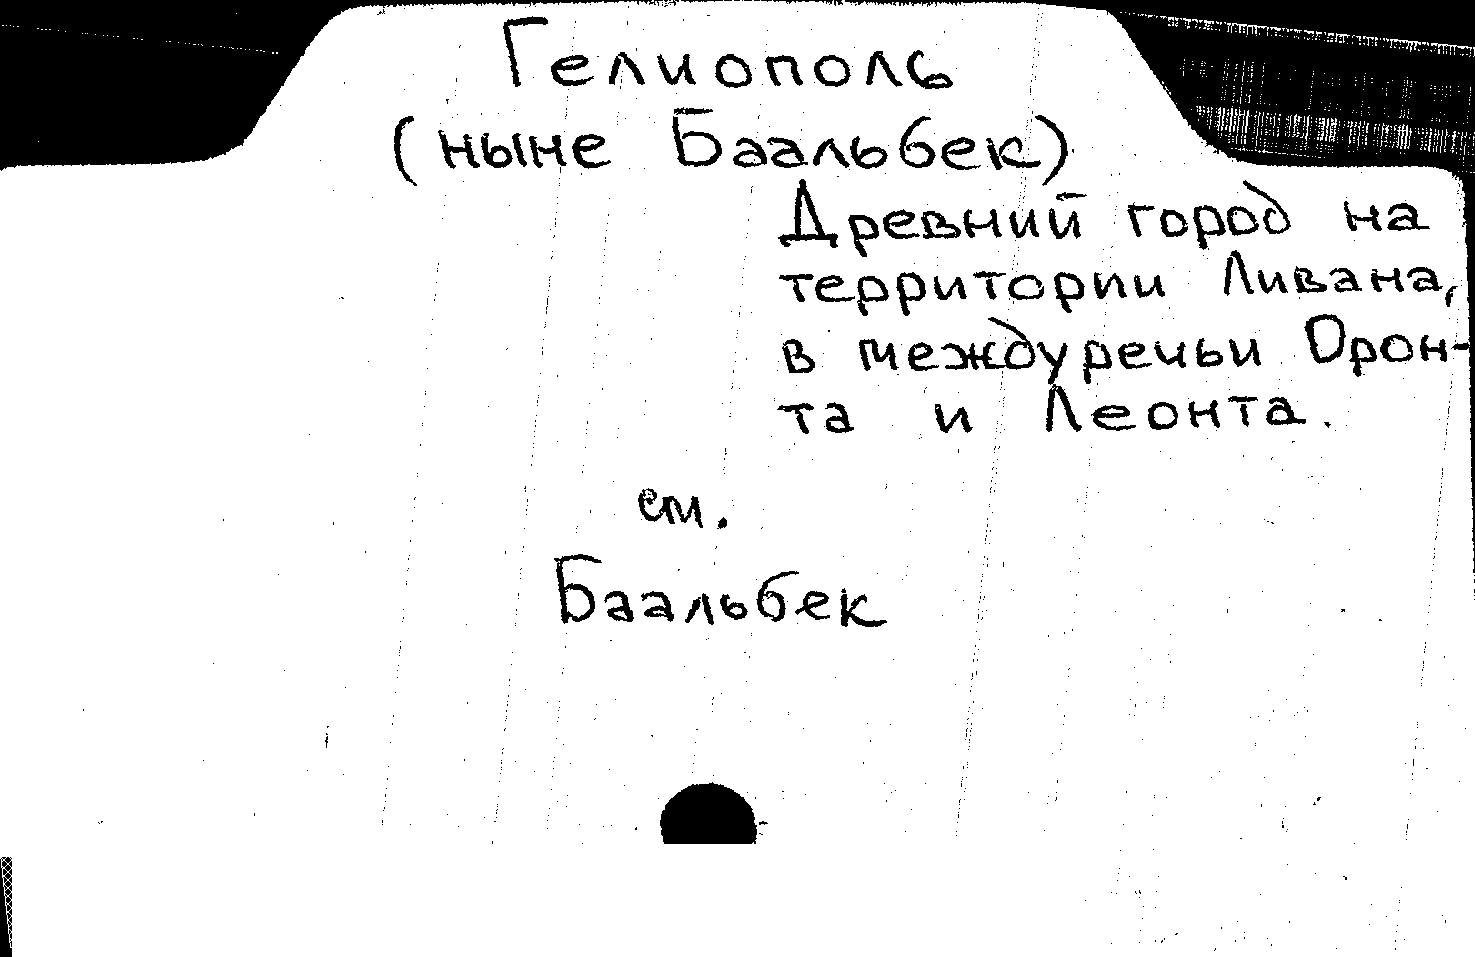 Гелиополь
(ныне Баальбек)
Древний город на
территории Ливана,
в междуречьи Орон-
та и Леонта.
см.
Баальбек